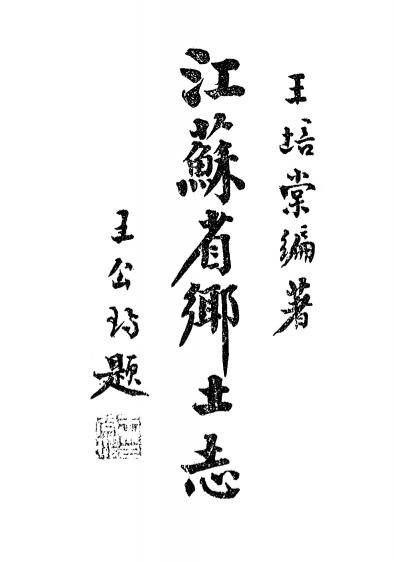 王培棠編著
江蘇省鄉土志
王公璵題